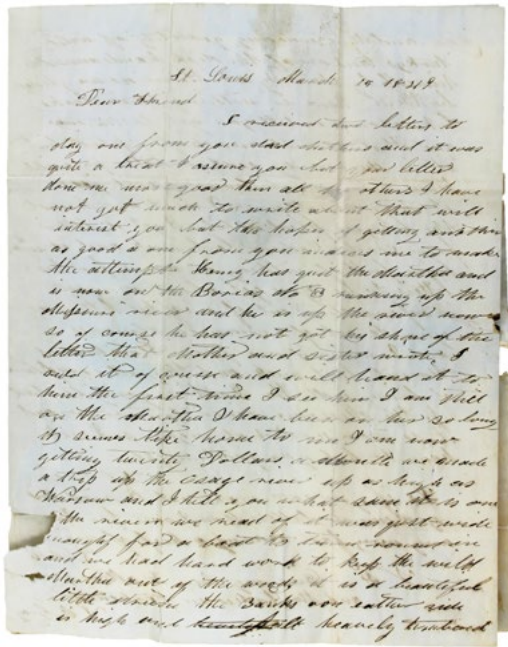 St. Louis March 19 1849
Dear Friend
I received two letters to
day one from you and and it was
quite a treat I assure you but your letter
done me more good then all the others I have
not got much to write about that will
interest you but the hopes of getting another
as good a one from you induces me to make
the attempt Henry has quit the Martha and
is now on the Boreas No 3 running up the
Missouri river and he is up the river now
so of course he has not got his share of the
letter that Mother and sister wrote I
read it of course and will hand it to
him the first time I see him I am still
on the Martha I have been on her so long
it seems like home to me I am now
getting twenty Dollars a month we made
a trip up the Osage river up as high as
Warsaw and I tell you what same it is one
of the rivers we read of it was just wide
enought for a boat to turn round in
and we had hard work to keep the wild
Martha out of the woods it is a beautiful
little stream the Banks on either side
is high and heavely timbered